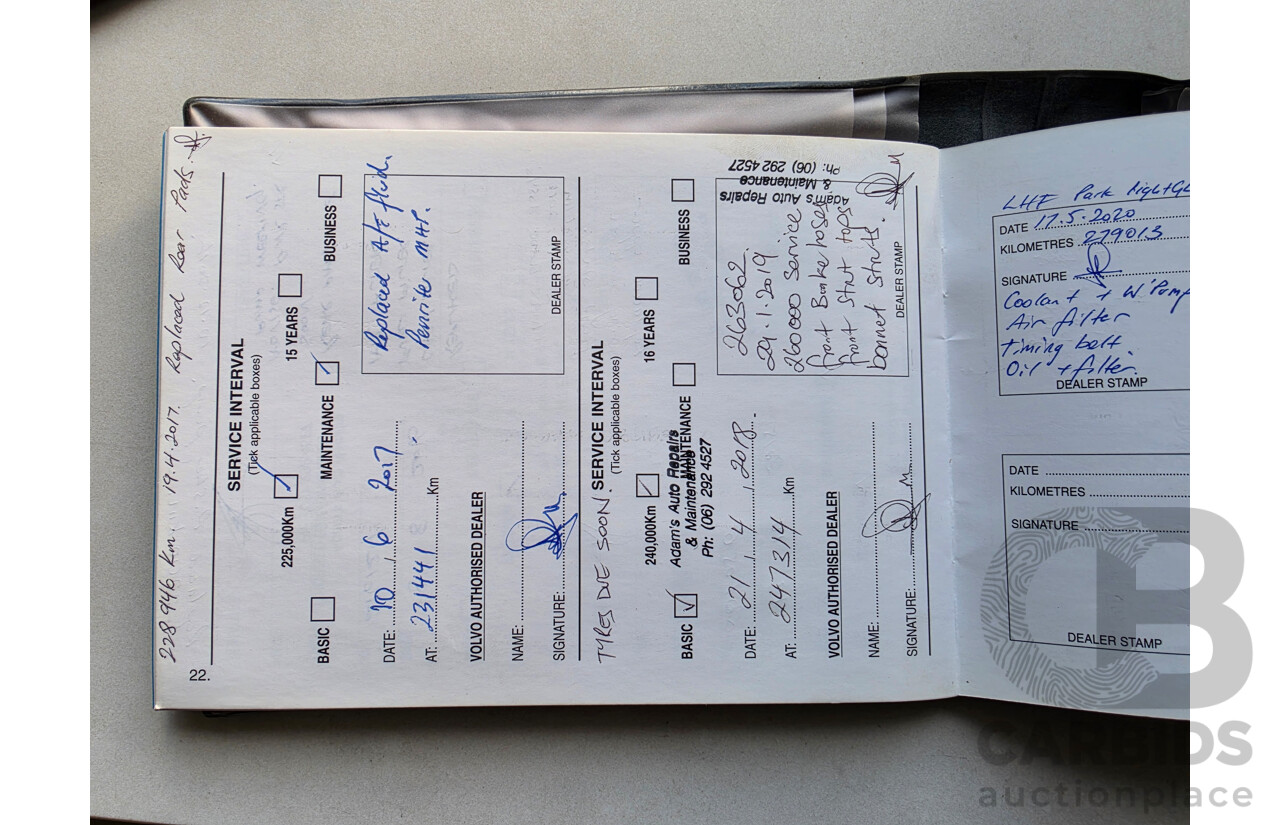 228946 Km. 19.4.2017. Replaced Rear Pads.
SERVICE INTERVAL
(Tick applicable boxes)
225,000Km
15 YEARS
BASIC
MAINTENANCE
BUSINESS
DATE: 10.6.2017
AT: 231441 Km
VOLVO AUTHORISED DEALER
NAME:
SIGNATURE:
Replaced A/T fluid.
Penrite MHP.
DEALER STAMP
TYRES DUE SOON.
SERVICE INTERVAL
(Tick applicable boxes)
240,000Km
16 YEARS
Adam's Auto Repairs
& Maintenance
Ph: (06) 292 4527
BASIC
MAINTENANCE
BUSINESS
DATE: 21.4.2018
AT: 247314 Km
VOLVO AUTHORISED DEALER
NAME:
SIGNATURE:
Adam's Auto Repairs
& Maintenance
Ph: (06) 292 4527
263062
29.1.2019
260000 service
front Brake hoses
front strut tops
bonnet struts.
DEALER STAMP
22.
LHF Park
DATE 17.5.2020
KILOMETRES 279013
SIGNATURE
Coolant + W'Pump
Air filter
timing belt
Oil + filter.
DEALER STAMP
DATE
KILOMETRES
SIGNATURE
DEALER STAMP
CARBIDS
auctionplace